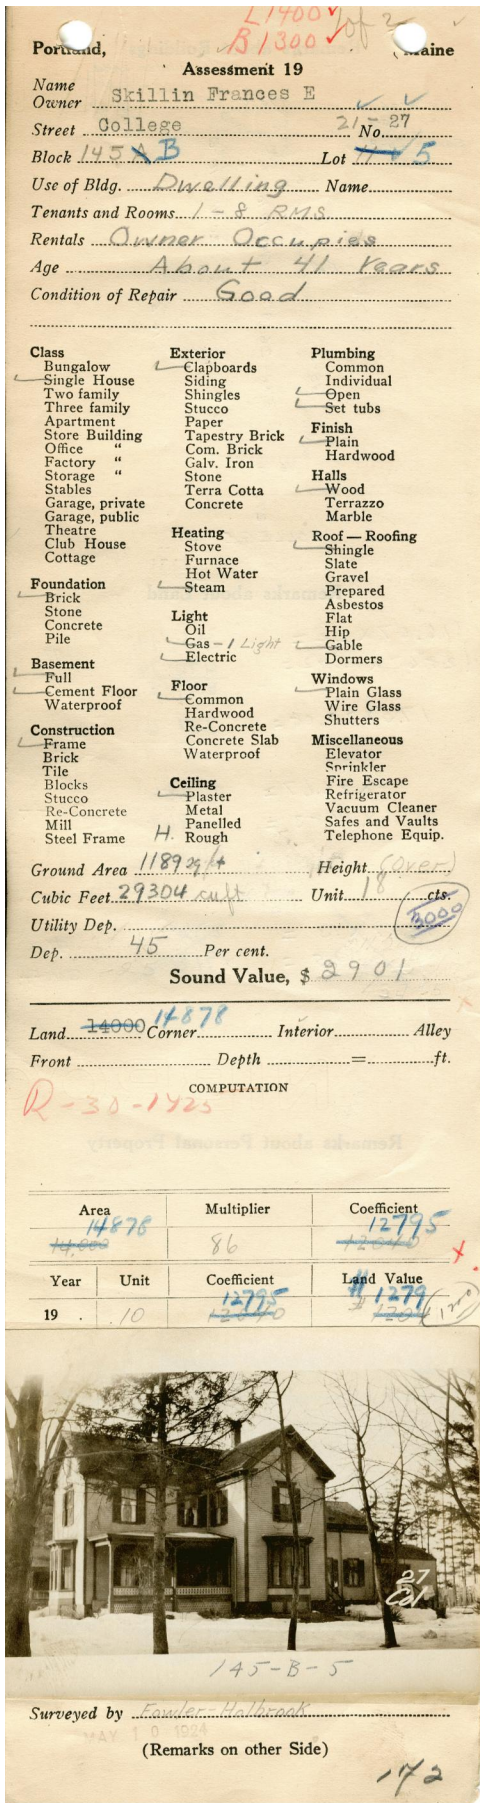 L1400 ✓ 1 of 2
B1300 ✓
Portland, Maine
Assessment 19
Name
Owner Skillin Frances E
Street College 21-27 No.
Block 145 A B Lot 11 5
Use of Bldg. Dwelling Name
Tenants and Rooms 1-8 RMS
Rentals Owner Occupies
Age About 41 Years
Condition of Repair Good
Class
Bungalow
Single House
Two family
Three family
Apartment
Store Building
Office "
Factory "
Storage "
Stables
Garage, private
Garage, public
Theatre
Club House
Cottage
Foundation
Brick
Stone
Concrete
Pile
Basement
Full
Cement Floor
Waterproof
Construction
Frame
Brick
Tile
Blocks
Stucco
Re-Concrete
Mill
Steel Frame
Exterior
Clapboards
Siding
Shingles
Stucco
Paper
Tapestry Brick
Com. Brick
Galv. Iron
Stone
Terra Cotta
Concrete
Heating
Stove
Furnace
Hot Water
Steam
Light
Oil
Gas - 1 Light
Electric
Floor
Common
Hardwood
Re-Concrete
Concrete Slab
Waterproof
Ceiling
Plaster
Metal
Panelled
H. Rough
Plumbing
Common
Individual
Open
Set tubs
Finish
Plain
Hardwood
Halls
Wood
Terrazzo
Marble
Roof — Roofing
Shingle
Slate
Gravel
Prepared
Asbestos
Flat
Hip
Gable
Dormers
Windows
Plain Glass
Wire Glass
Shutters
Miscellaneous
Elevator
Sprinkler
Fire Escape
Refrigerator
Vacuum Cleaner
Safes and Vaults
Telephone Equip.
Ground Area 1189 sq ft Height (Over)
Cubic Feet 29304 cu ft Unit 18 cts.
3000
Utility Dep.
Dep. 45 Per cent.
Sound Value, $ 2901
14878
Land 14000 Corner Interior Alley
Front Depth = ft.
COMPUTATION
R-30-1425
Area Multiplier Coefficient
14878 12795
14,000 86 12040
Year Unit Coefficient Land Value
12795 $ 1279
19 .10 12040 $ 1204 1200
27
Col
145-B-5
Surveyed by Fowler-Holbrook
MAY 10 1924
(Remarks on other Side)
172